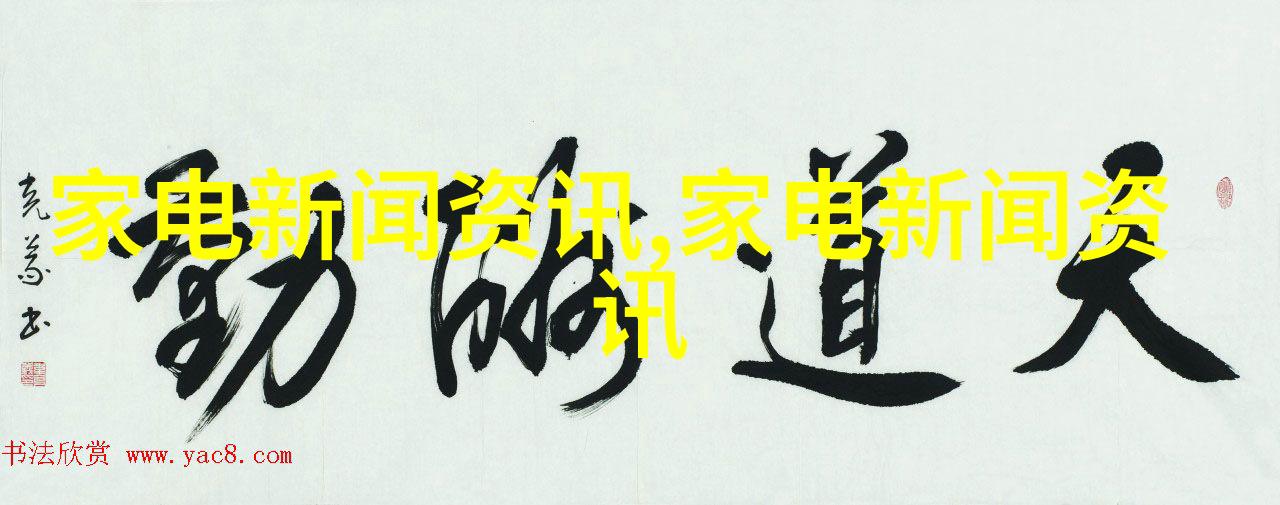 家电新闻资讯,家电新闻资
讯
天道酬勤
书法欣赏 www.yac8.com